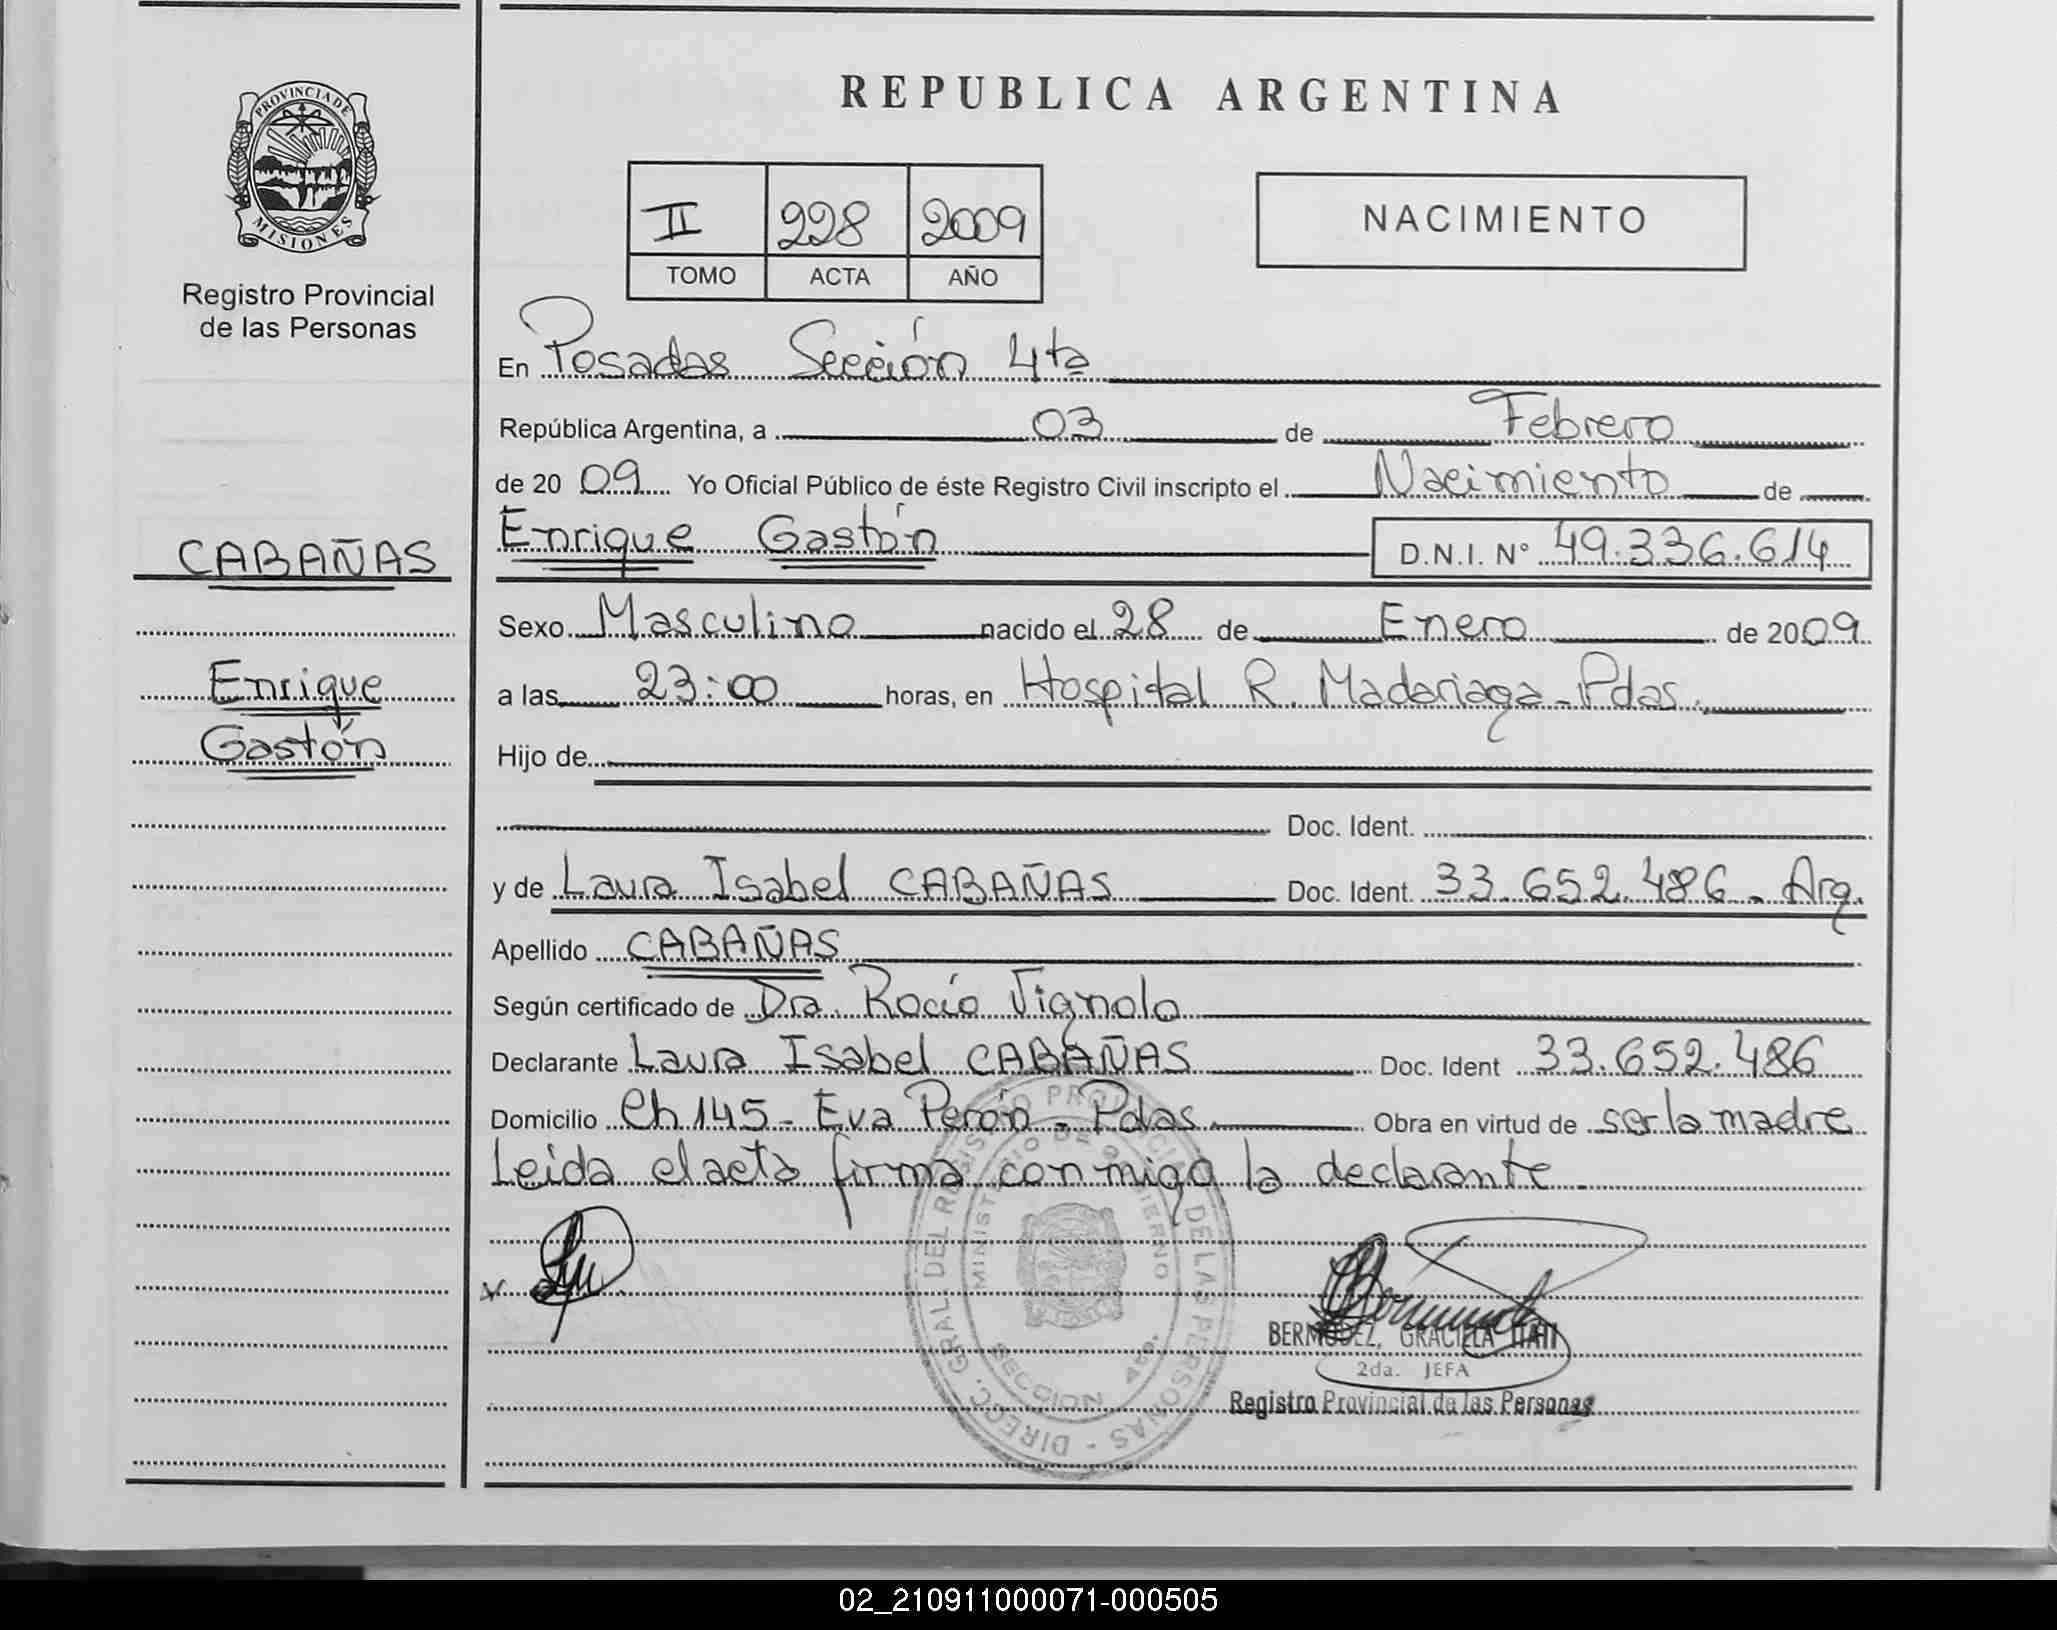 REPUBLICA ARGENTINA
PROVINCIA DE
MISIONES
Registro Provincial
de las Personas
II 228 2009
TOMO ACTA AÑO
NACIMIENTO
En Posadas Sección 4ta
República Argentina, a 03 de Febrero
de 2009 Yo Oficial Público de éste Registro Civil inscripto el Nacimiento de
CABAÑAS
Enrique Gastón D.N.I. N° 49.336.614
Sexo Masculino nacido el 28 de Enero de 2009
Enrique
a las 23:00 horas, en Hospital R. Madariaga - Pdas.
Gastón
Hijo de
Doc. Ident.
y de Laura Isabel CABAÑAS Doc. Ident. 33.652.486 - Arg.
Apellido CABAÑAS
Según certificado de Dra. Rocío Vignolo
Declarante Laura Isabel CABAÑAS Doc. Ident 33.652.486
Domicilio Ch 145 - Eva Perón - Pdas Obra en virtud de ser la madre
Leida el acta firma conmigo la declarante.
DIRECC. GRAL. DEL REGISTRO PROVINCIAL DE LAS PERSONAS -
MINISTERIO DE GOBIERNO
SECCION 4ta.
BERMUDEZ, GRACIELA ITATI
2da. JEFA
Registro Provincial de las Personas
02_210911000071-000505